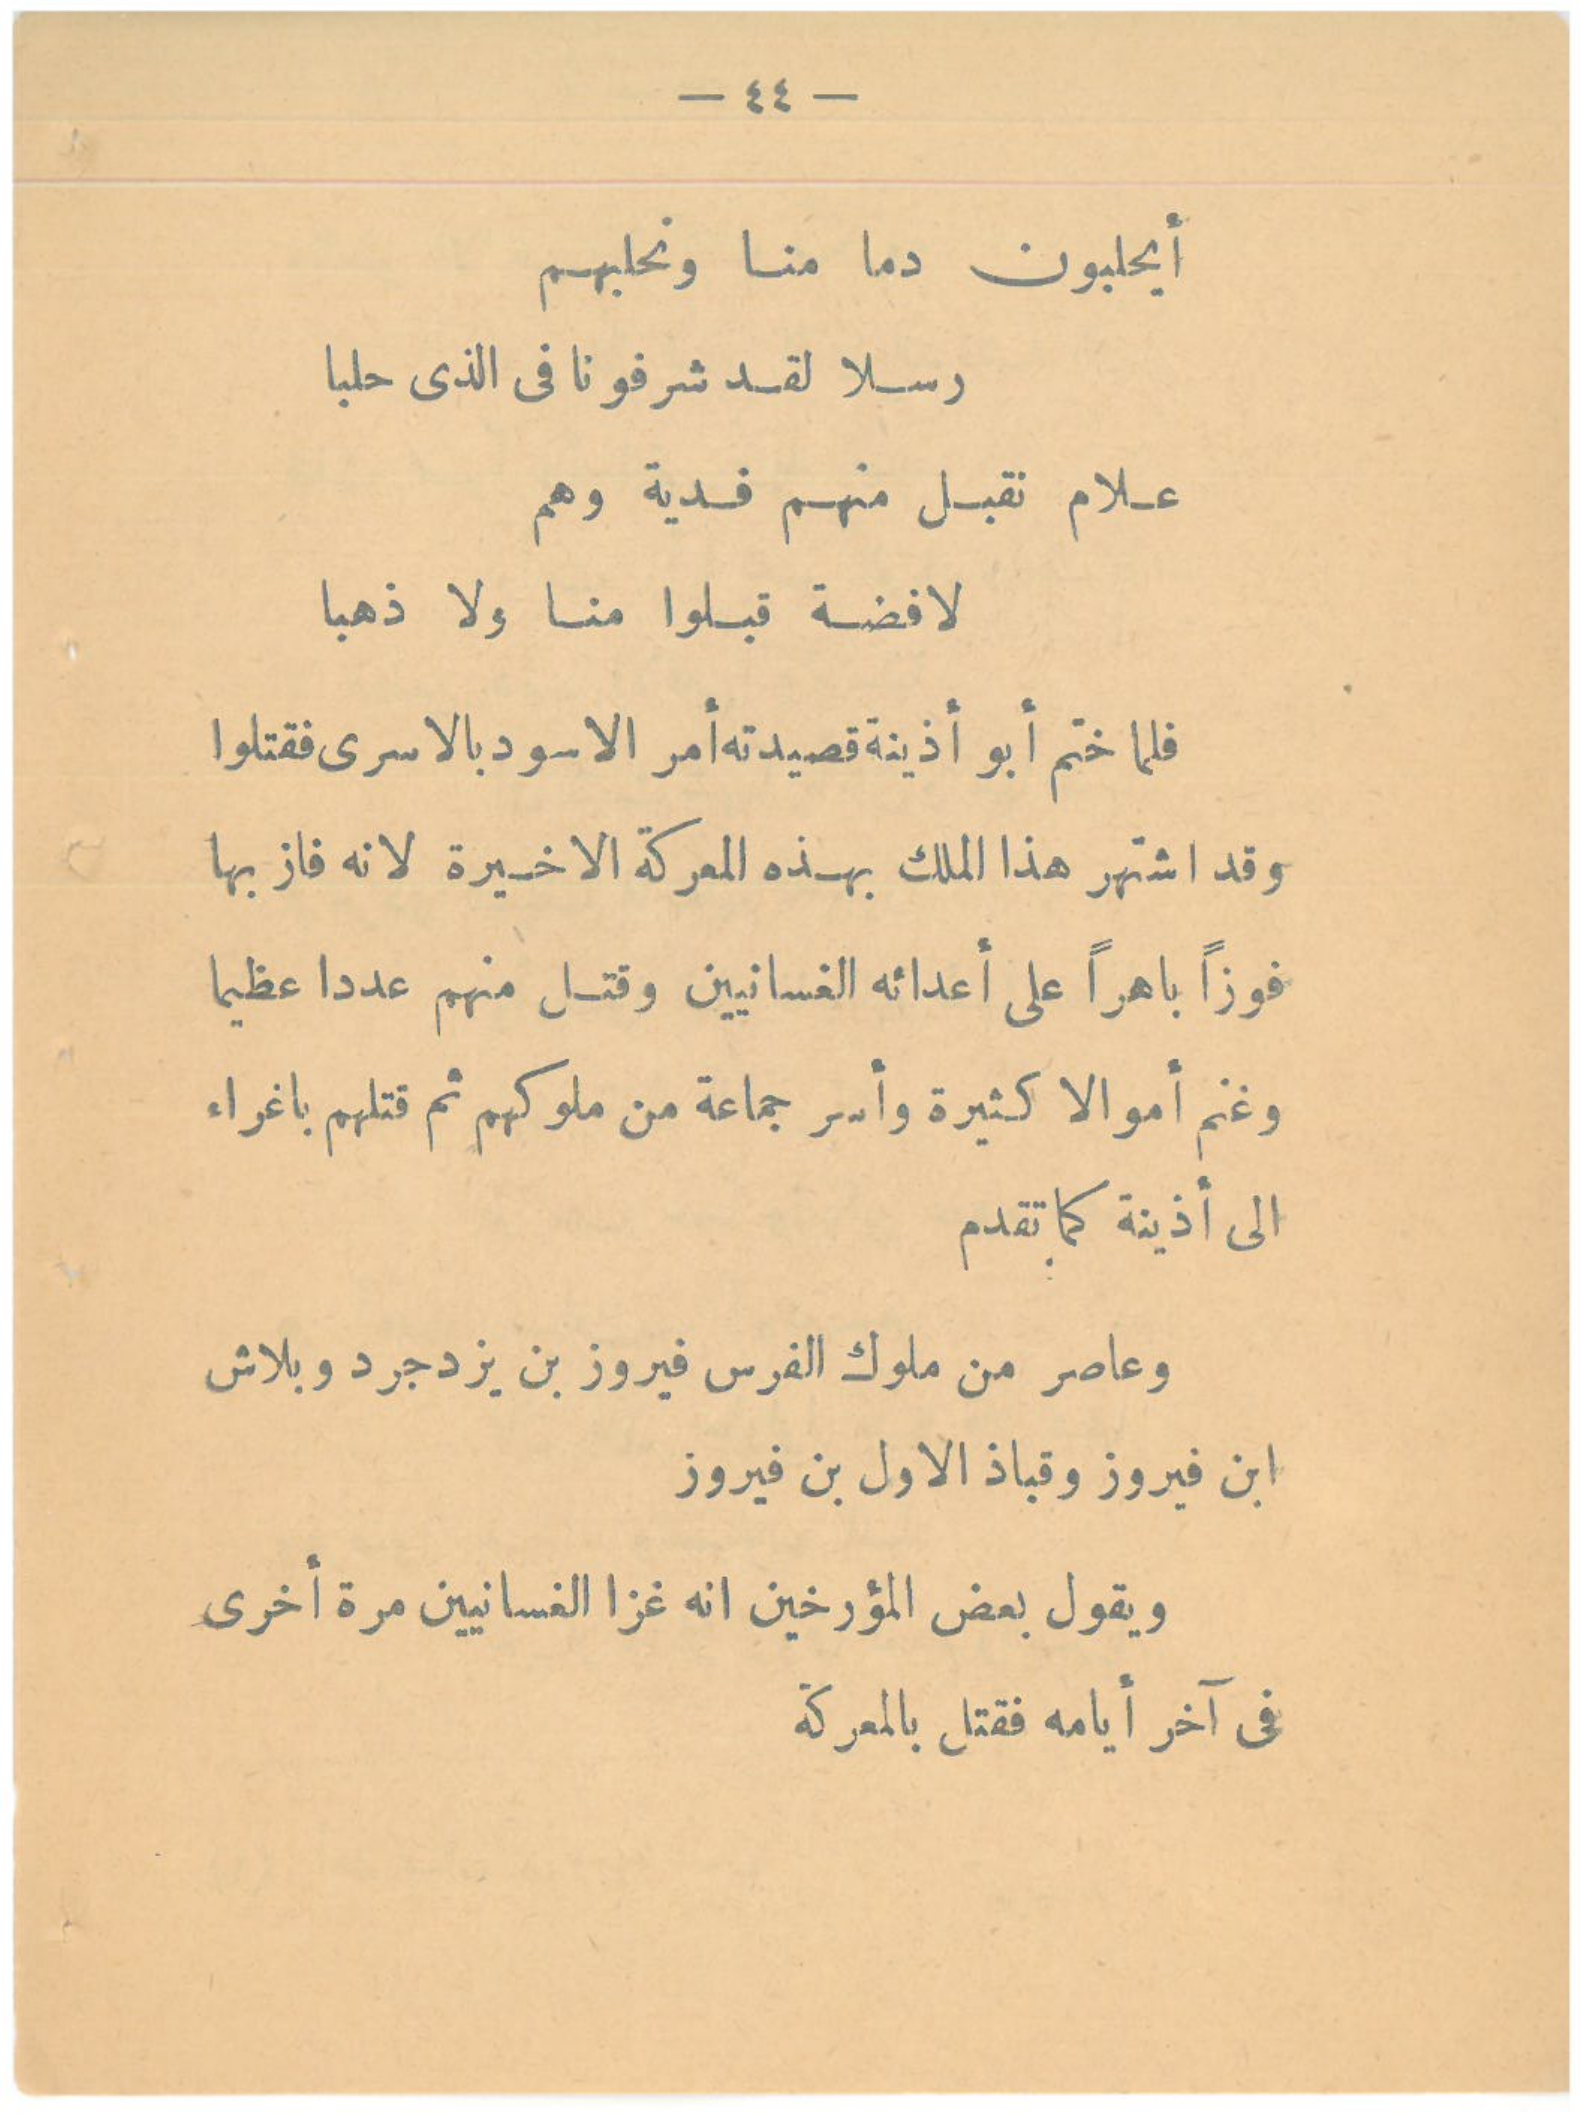 — ٤٤ —
أيحلبون دما منا ونحلبهم
رسلا لقد شرفونا فى الذى حلبا
علام نقبل منهم فدية وهم
لا فضة قبلوا منا ولا ذهبا
فلما ختم أبو أذينة قصيدته أمر الاسود بالاسرى فقتلوا
وقد اشتهر هذا الملك بهذه المعركة الاخيرة لانه فاز بها
فوزاً باهراً على أعدائه الغسانيين وقتل منهم عددا عظيما
وغنم أموالا كثيرة وأسر جماعة من ملوكهم ثم قتلهم باغراء
الى أذينة كما تقدم
وعاصر من ملوك الفرس فيروز بن يزدجرد وبلاش
ابن فيروز وقباذ الاول بن فيروز
ويقول بعض المؤرخين انه غزا الغسانيين مرة أخرى
فى آخر أيامه فقتل بالمعركة